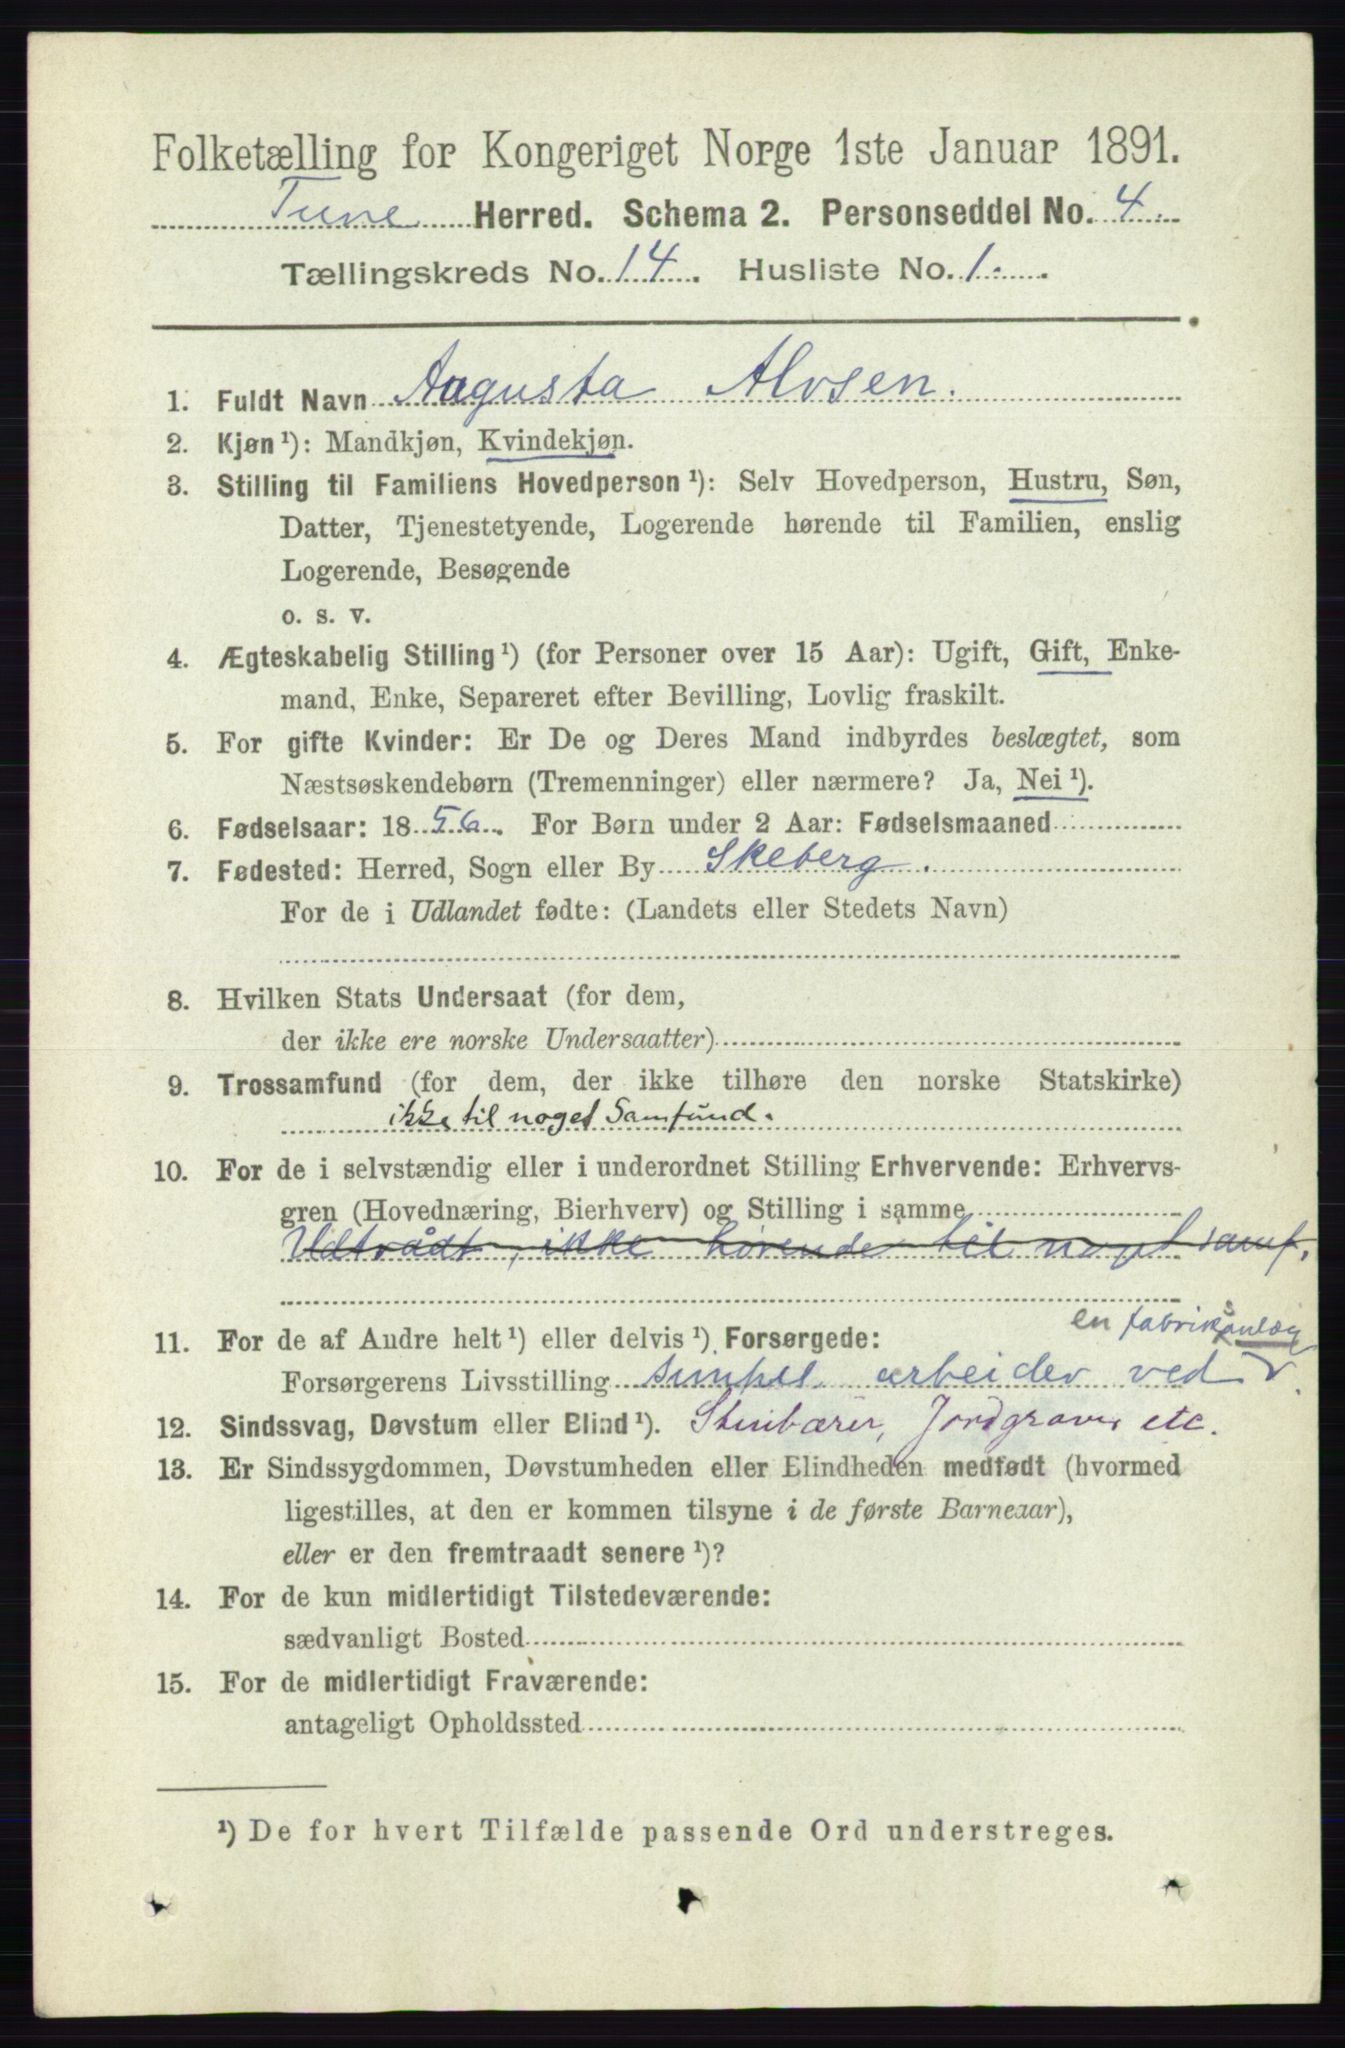 Folketælling for Kongeriget Norge 1ste Januar 1891.
Tune Herred. Schema 2. Personseddel No. 4.
Tællingskreds No. 14. Husliste No. 1.
1. Fuldt Navn Augusta Alvsen.
2. Kjøn ¹): Mandkjøn, Kvindekjøn.
3. Stilling til Familiens Hovedperson ¹): Selv Hovedperson, Hustru, Søn,
Datter, Tjenestetyende, Logerende hørende til Familien, enslig
Logerende, Besøgende
o. s. v.
4. Ægteskabelig Stilling ¹) (for Personer over 15 Aar): Ugift, Gift, Enke-
mand, Enke, Separeret efter Bevilling, Lovlig fraskilt.
5. For gifte Kvinder: Er De og Deres Mand indbyrdes beslægtet, som
Næstsøskendebørn (Tremenninger) eller nærmere? Ja, Nei ¹).
6. Fødselsaar: 1856. For Børn under 2 Aar: Fødselsmaaned
7. Fødested: Herred, Sogn eller By Skeberg.
For de i Udlandet fødte: (Landets eller Stedets Navn)
8. Hvilken Stats Undersaat (for dem,
der ikke ere norske Undersaatter)
9. Trossamfund (for dem, der ikke tilhøre den norske Statskirke)
ikke til noget Samfund.
10. For de i selvstændig eller i underordnet Stilling Erhvervende: Erhvervs-
gren (Hovednæring, Bierhverv) og Stilling i samme
Udtrådt, ikke hørende til noget samf.
en fabriksanlæg
11. For de af Andre helt ¹) eller delvis ¹) Forsørgede:
Forsørgerens Livsstilling simpel arbeider ved
12. Sindssvag, Døvstum eller Blind ¹). Stenbærer, Jordgraver etc.
13. Er Sindssygdommen, Døvstumheden eller Blindheden medfødt (hvormed
ligestilles, at den er kommen tilsyne i de første Barneaar),
eller er den fremtraadt senere ¹)?
14. For de kun midlertidigt Tilstedeværende:
sædvanligt Bosted
15. For de midlertidigt Fraværende:
antageligt Opholdssted
¹) De for hvert Tilfælde passende Ord understreges.